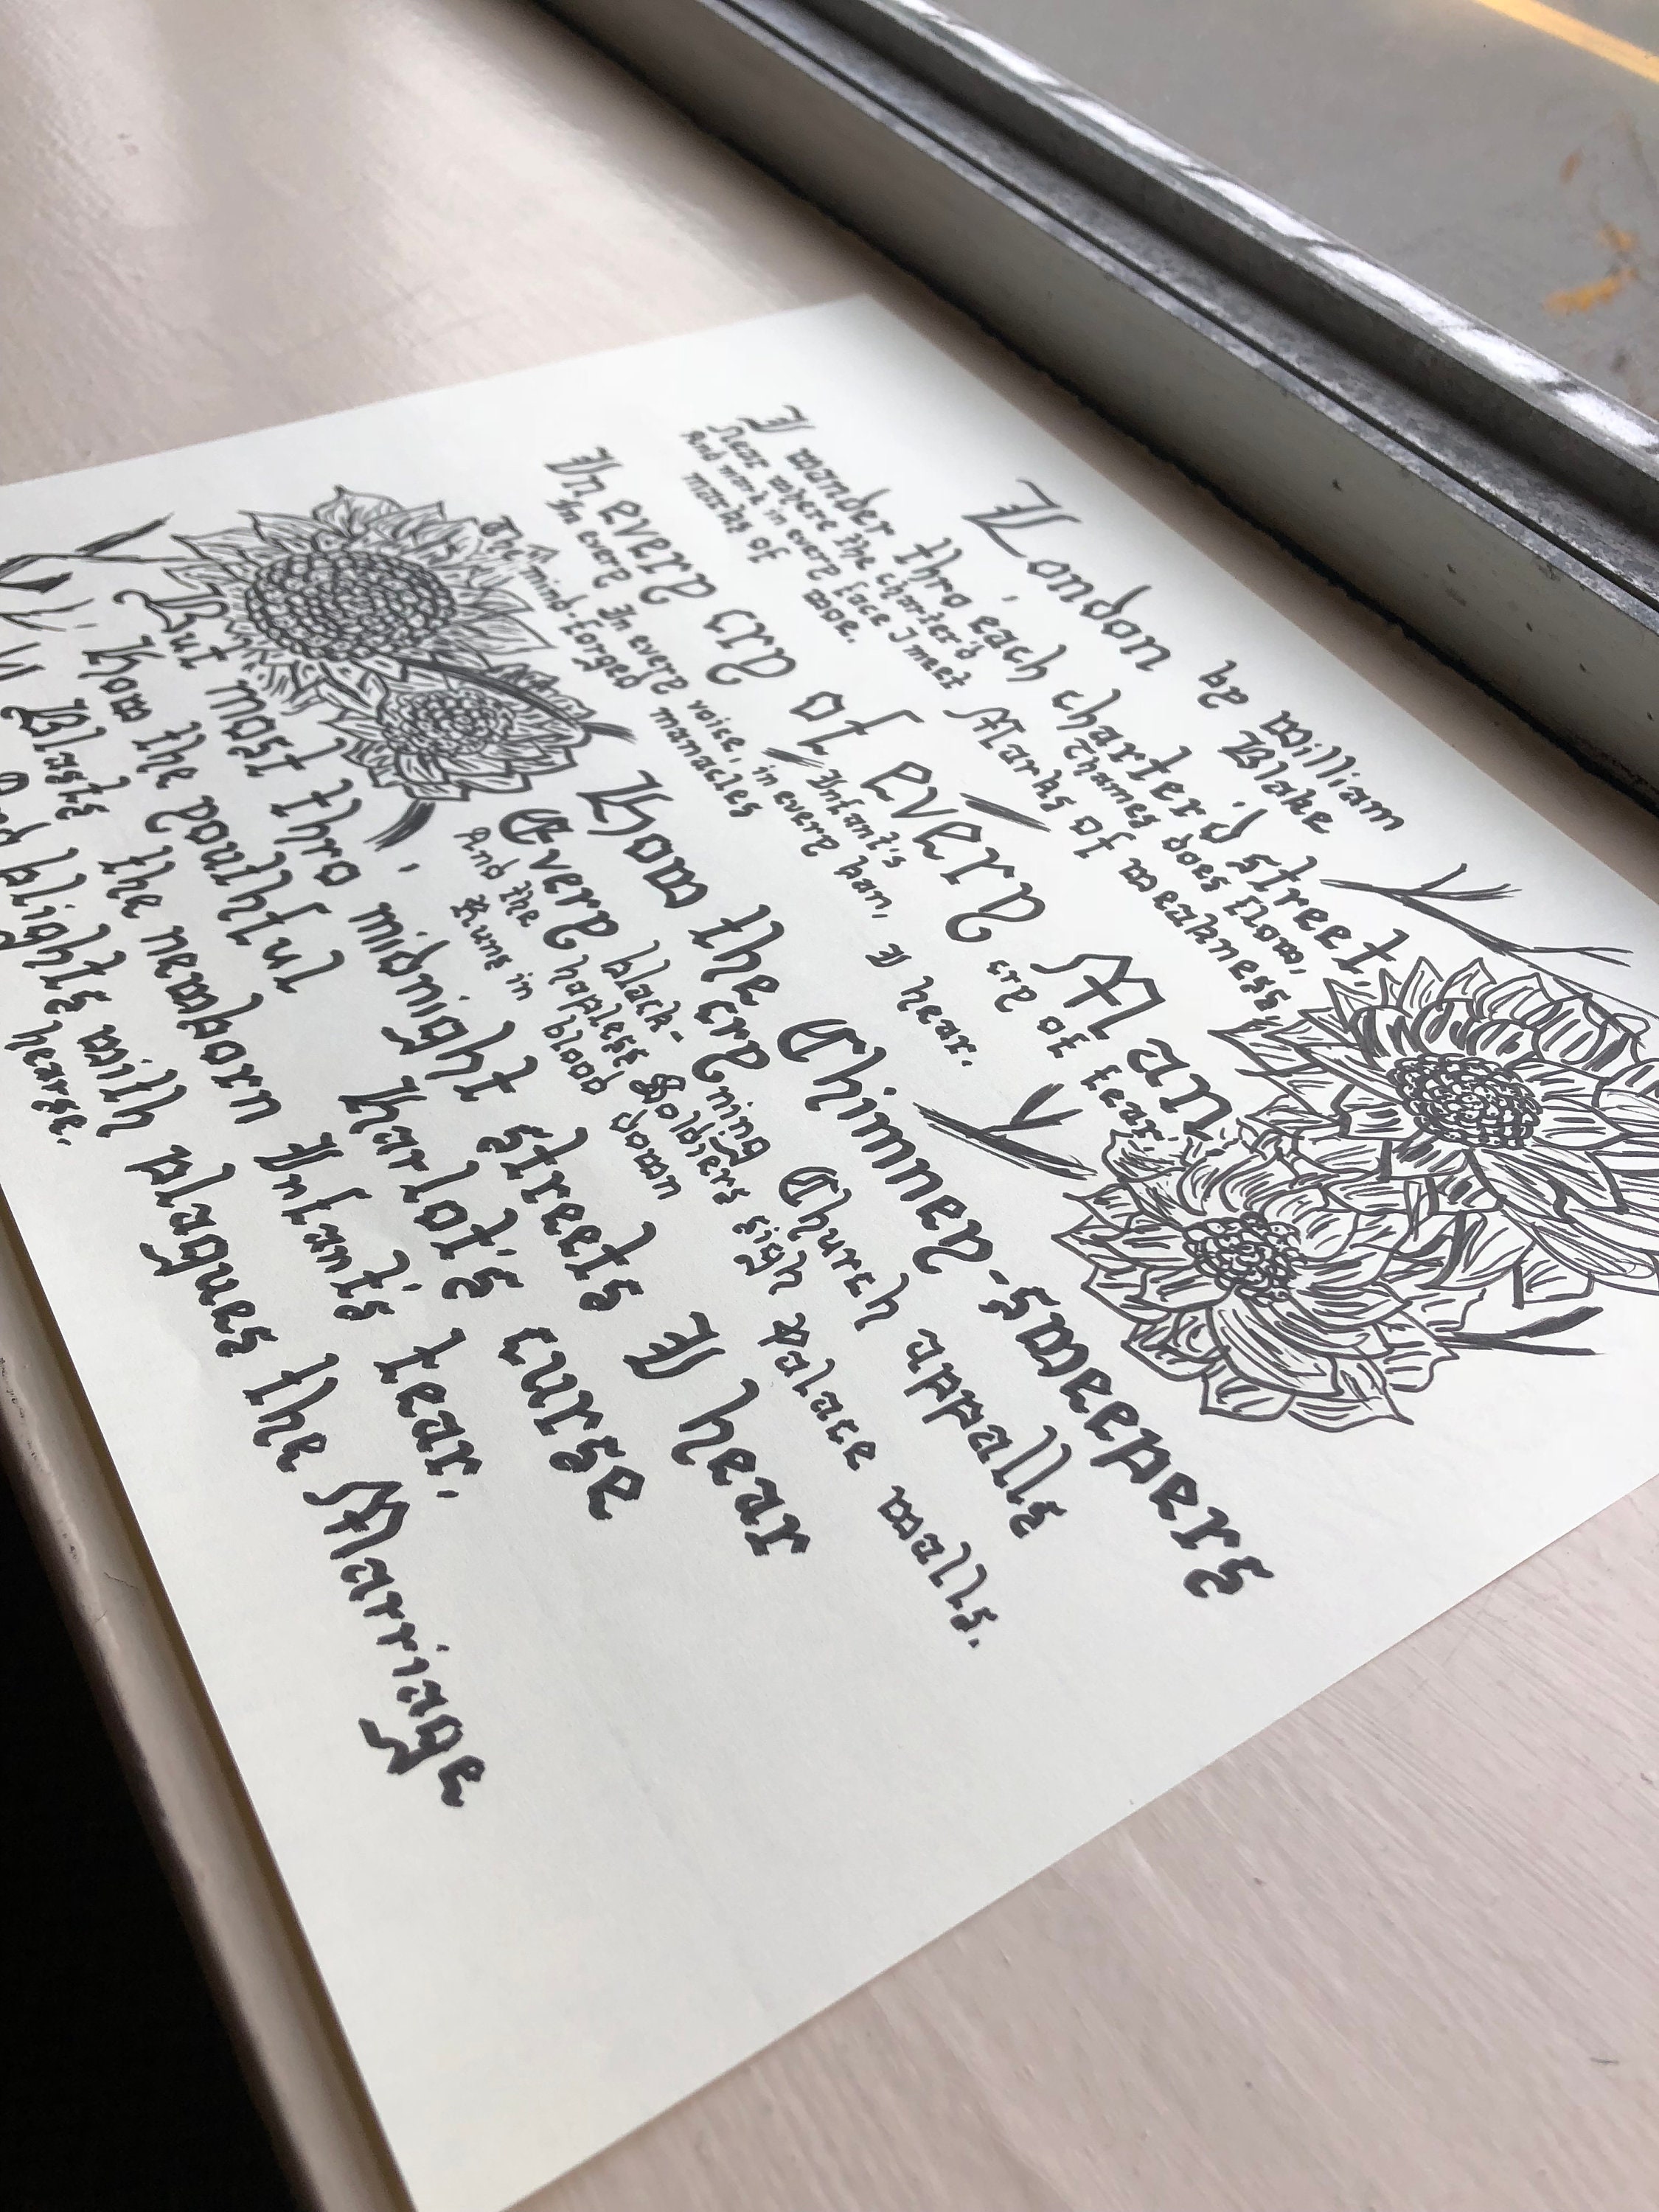 London by William
Blake
I wander thro' each charter'd street,
Near where the charter'd Thames does flow,
And mark in every face I meet Marks of weakness,
marks of woe.
In every cry of every Man
In every Infant's cry of fear.
In every voice, in every ban, I hear.
The mind-forged manacles
How the Chimney-sweepers
cry
Every black-ning Church appalls
And the hapless Soldiers sigh
Runs in blood down Palace walls.
But most thro' midnight streets I hear
How the youthful Harlot's curse
Blasts the newborn Infant's tear,
And blights with plagues the Marriage
hearse.